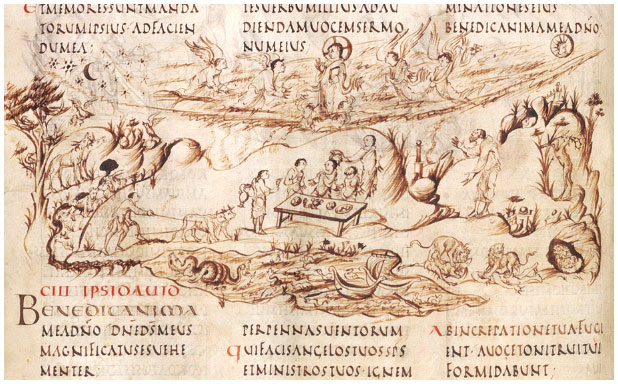 ETMEMORESSUNTMANDA
TORUMIPSIUS·ADFACIEN
DUMEA:
IESUERBUMILLIUSADAU
DIENDAMUOCEMSERMO
NUMEIUS·
MINATIONESEIUS
BENEDICANIMAMEADÑO·
CIII IPSIDAUID
BENEDICANIMA
MEADÑO DNEDS̄MEUS
MAGNIFICATUSESUEHE
MENTER·
PERPENNASUENTORUM
QUIFACISANGELOSTUOSSPS
ETMINISTROSTUOS·IGNEM
ABINCREPATIONETUAFUGI
ENT·AUOCETONITRUITUI
FORMIDABUNT·